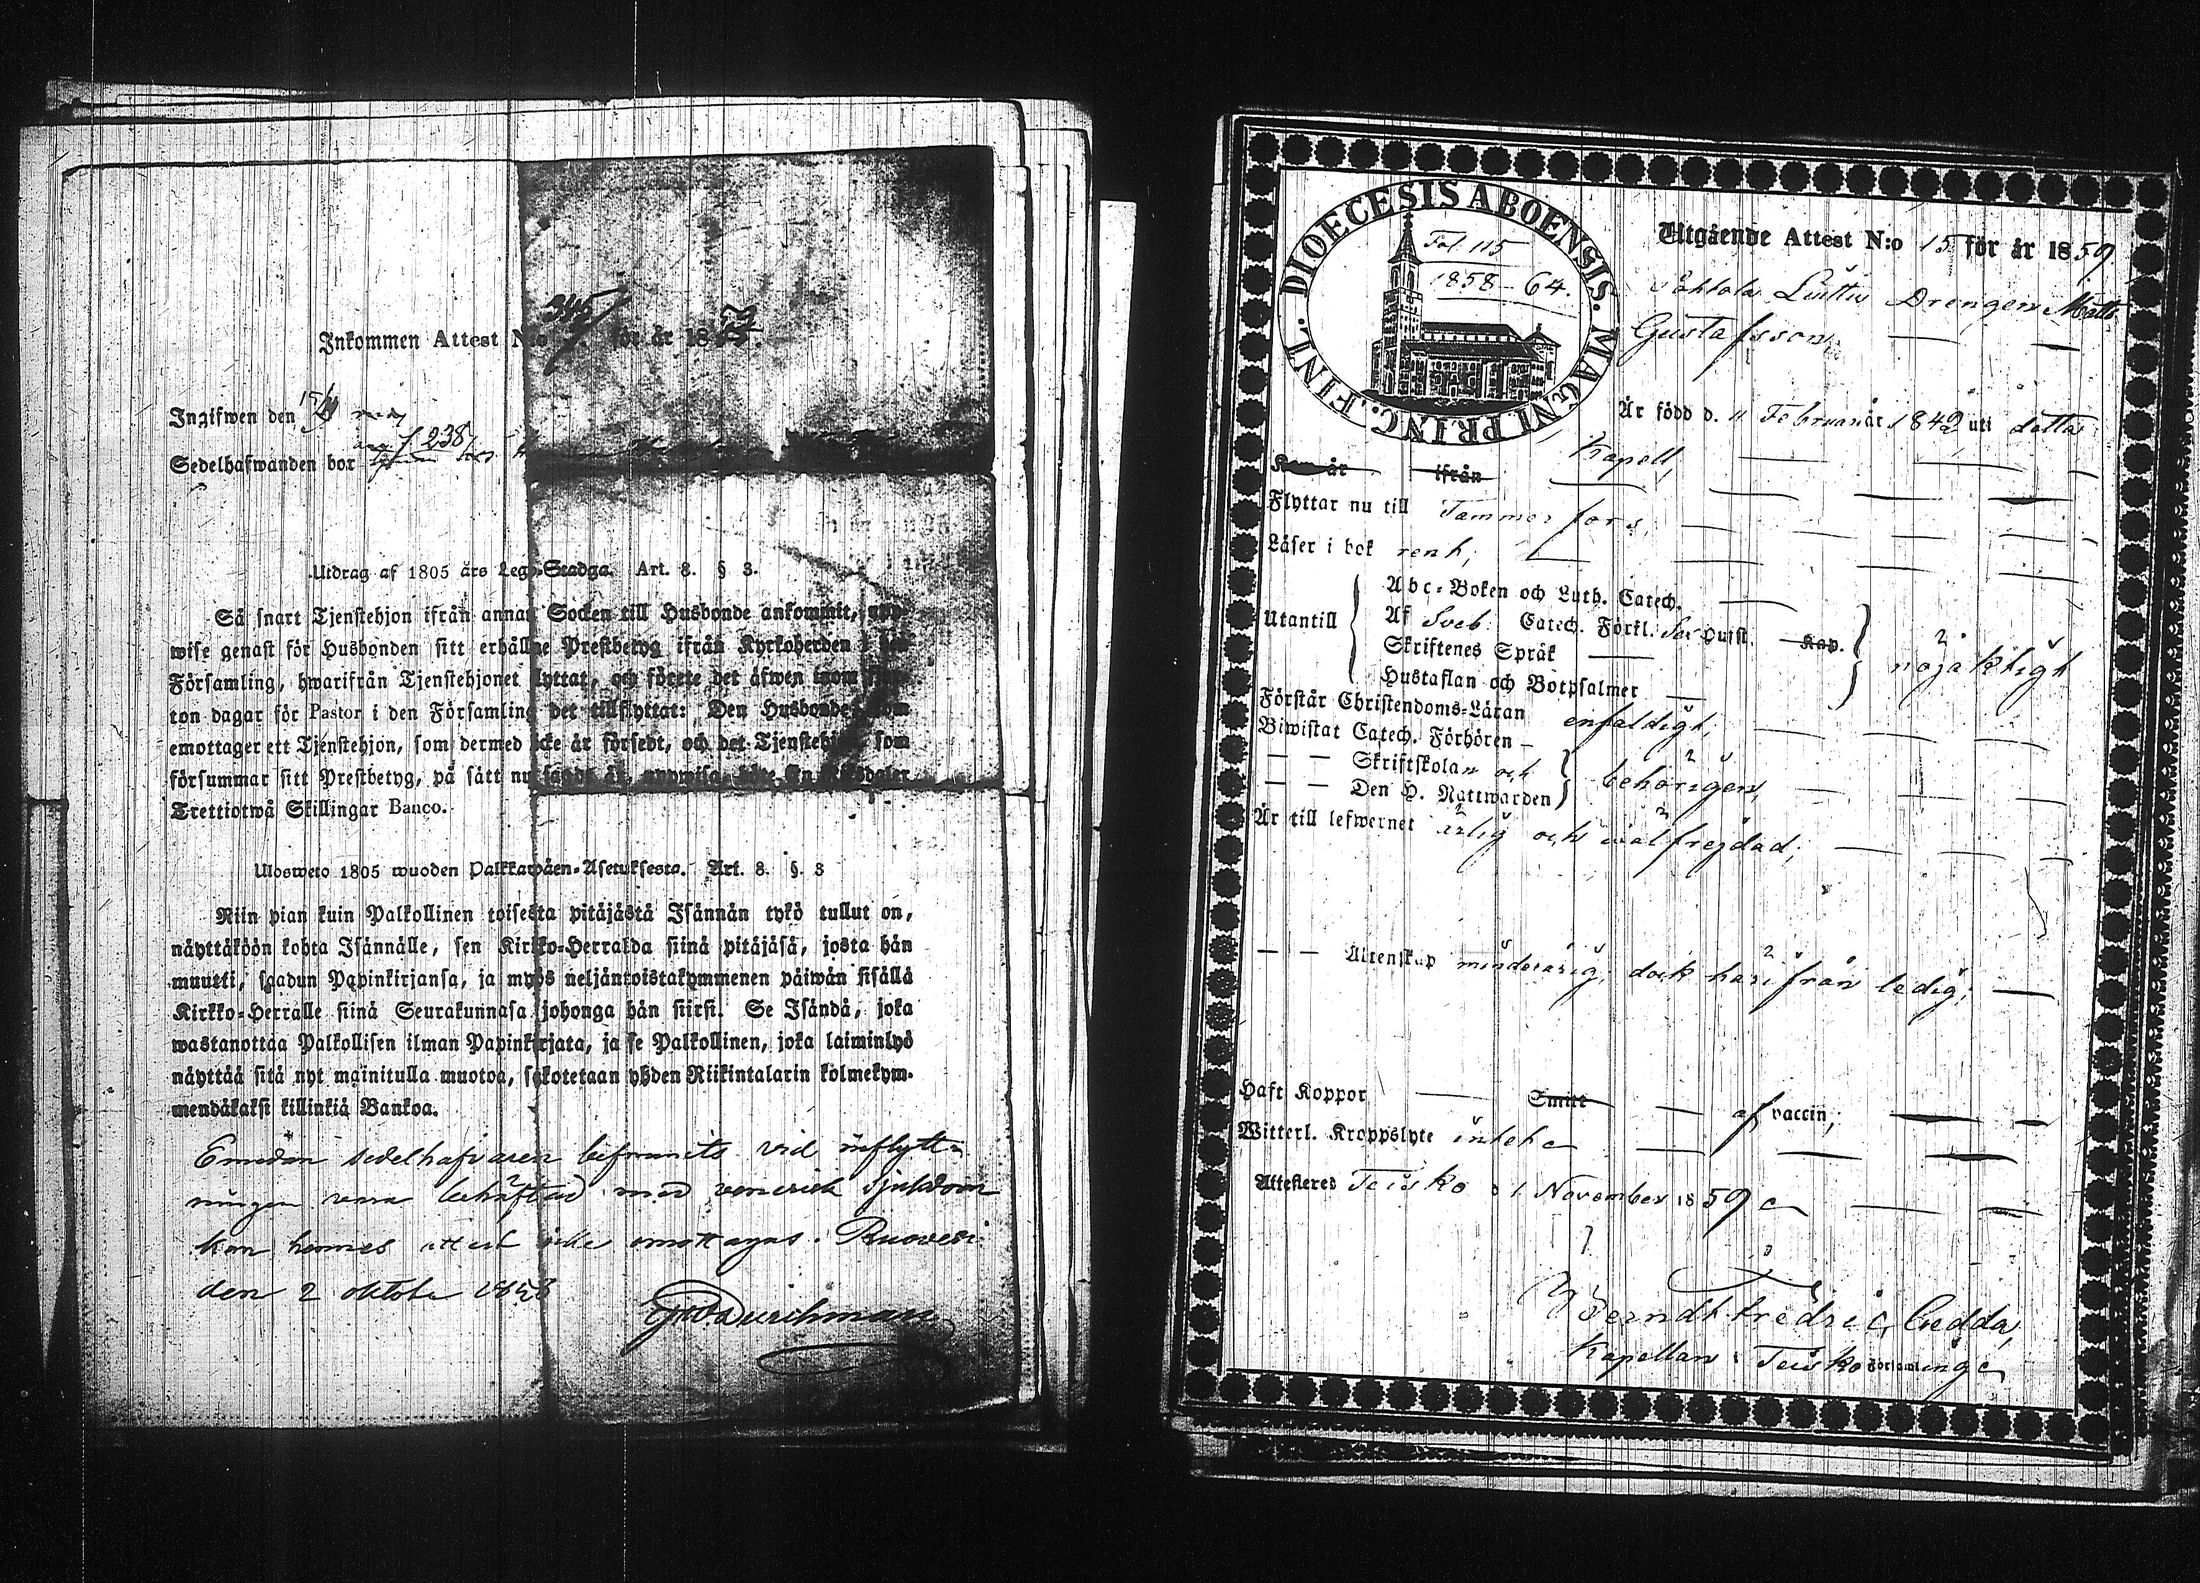 Inkommen Attest N:o 345 för år 18
Ingifwen den
f 238
Sedelhafwanden bor
Utdrag af 1805 års Lego-Stadga. Art. 8. § 3.
Så snart Tjenstehjon ifrån annan Socken till Husbonde ankommit, upp-
wise genast för Husbonden sitt erhållne Prestbetyg ifrån Kyrkoherden i den
Församling, hwarifrån Tjenstehjonet flyttat, och förete det äfwen inom fjor-
ton dagar för Pastor i den Församling det tillflyttat: Den Husbonde, som
emottager ett Tjenstehjon, som dermed icke är försedt, och det Tjenstehjon som
försummar sitt Prestbetyg, på sätt nu sagdt är, uppwisa, böte En Riksdaler
Trettiotwå Skillingar Banco.
Ulosweto 1805 wuoden Palkkawäen-Asetuksesta. Art. 8. §. 3
Niin pian kuin Palkollinen toisesta pitäjästä Isännän tykö tullut on,
näyttäköön kohta Isännälle, sen Kirkko-Herralda siinä pitäjäsä, josta hän
muutti, saadun Papinkirjansa, ja myös neljäntoistakymmenen päiwän sisällä
Kirkko-Herralle siinä Seurakunnasa johonga hän siirsi. Se Isändä, joka
wastanottaa Palkollisen ilman Papinkirjata, ja se Palkollinen, joka laiminlyö
näyttää sitä nyt mainitulla muotoa, sakotetaan yhden Riikintalarin kolmekym-
mendäkaksi killinkiä Bankoa.
Emedan sedelhafvaren befunnits vid inflytt-
ningen vara behäftad med venerisk sjukdom
kan hennes attest icke emottagas. Ruovesi
den 2 oktobe 1858
DIOECESIS ABOENSIS. MAGNI PRINC. FINL.
Fol. 115
1858-64.
Utgående Attest N:o 15 för år 1859
Drengen Matts
Gustafsson
Är född d. 11 Februari år 1842 uti detta
Kapell,
Kom år ifrån
Flyttar nu till Tammerfors
Läser i bok rent,
Utantill
Abc-Boken och Luth. Catech.
Af Sveb. Catech. Förkl. Sex Hufst. Kap.
Skriftenes Språk
Hustaflan och Botpsalmer
nöjaktigt
Förstår Christendoms-Läran enfaldigt,
Biwistat Catech. Förhören
— — Skriftskolan och
— — Den H. Nattwarden
behörigen,
Är till lefwernet ärlig och wälfrejdad,
— — Äktenskap minderårig, dock härifrån ledig;
Haft Koppor Smitt af vaccin,
Witterl. Kroppslyte intet
Attesteras Teisko d 1 November 1859
Berndt Fredric Gedda,
Kapellan i Teisko Församling